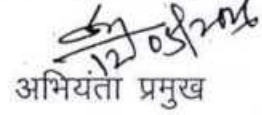 12/05/2026
अभियंता प्रमुख